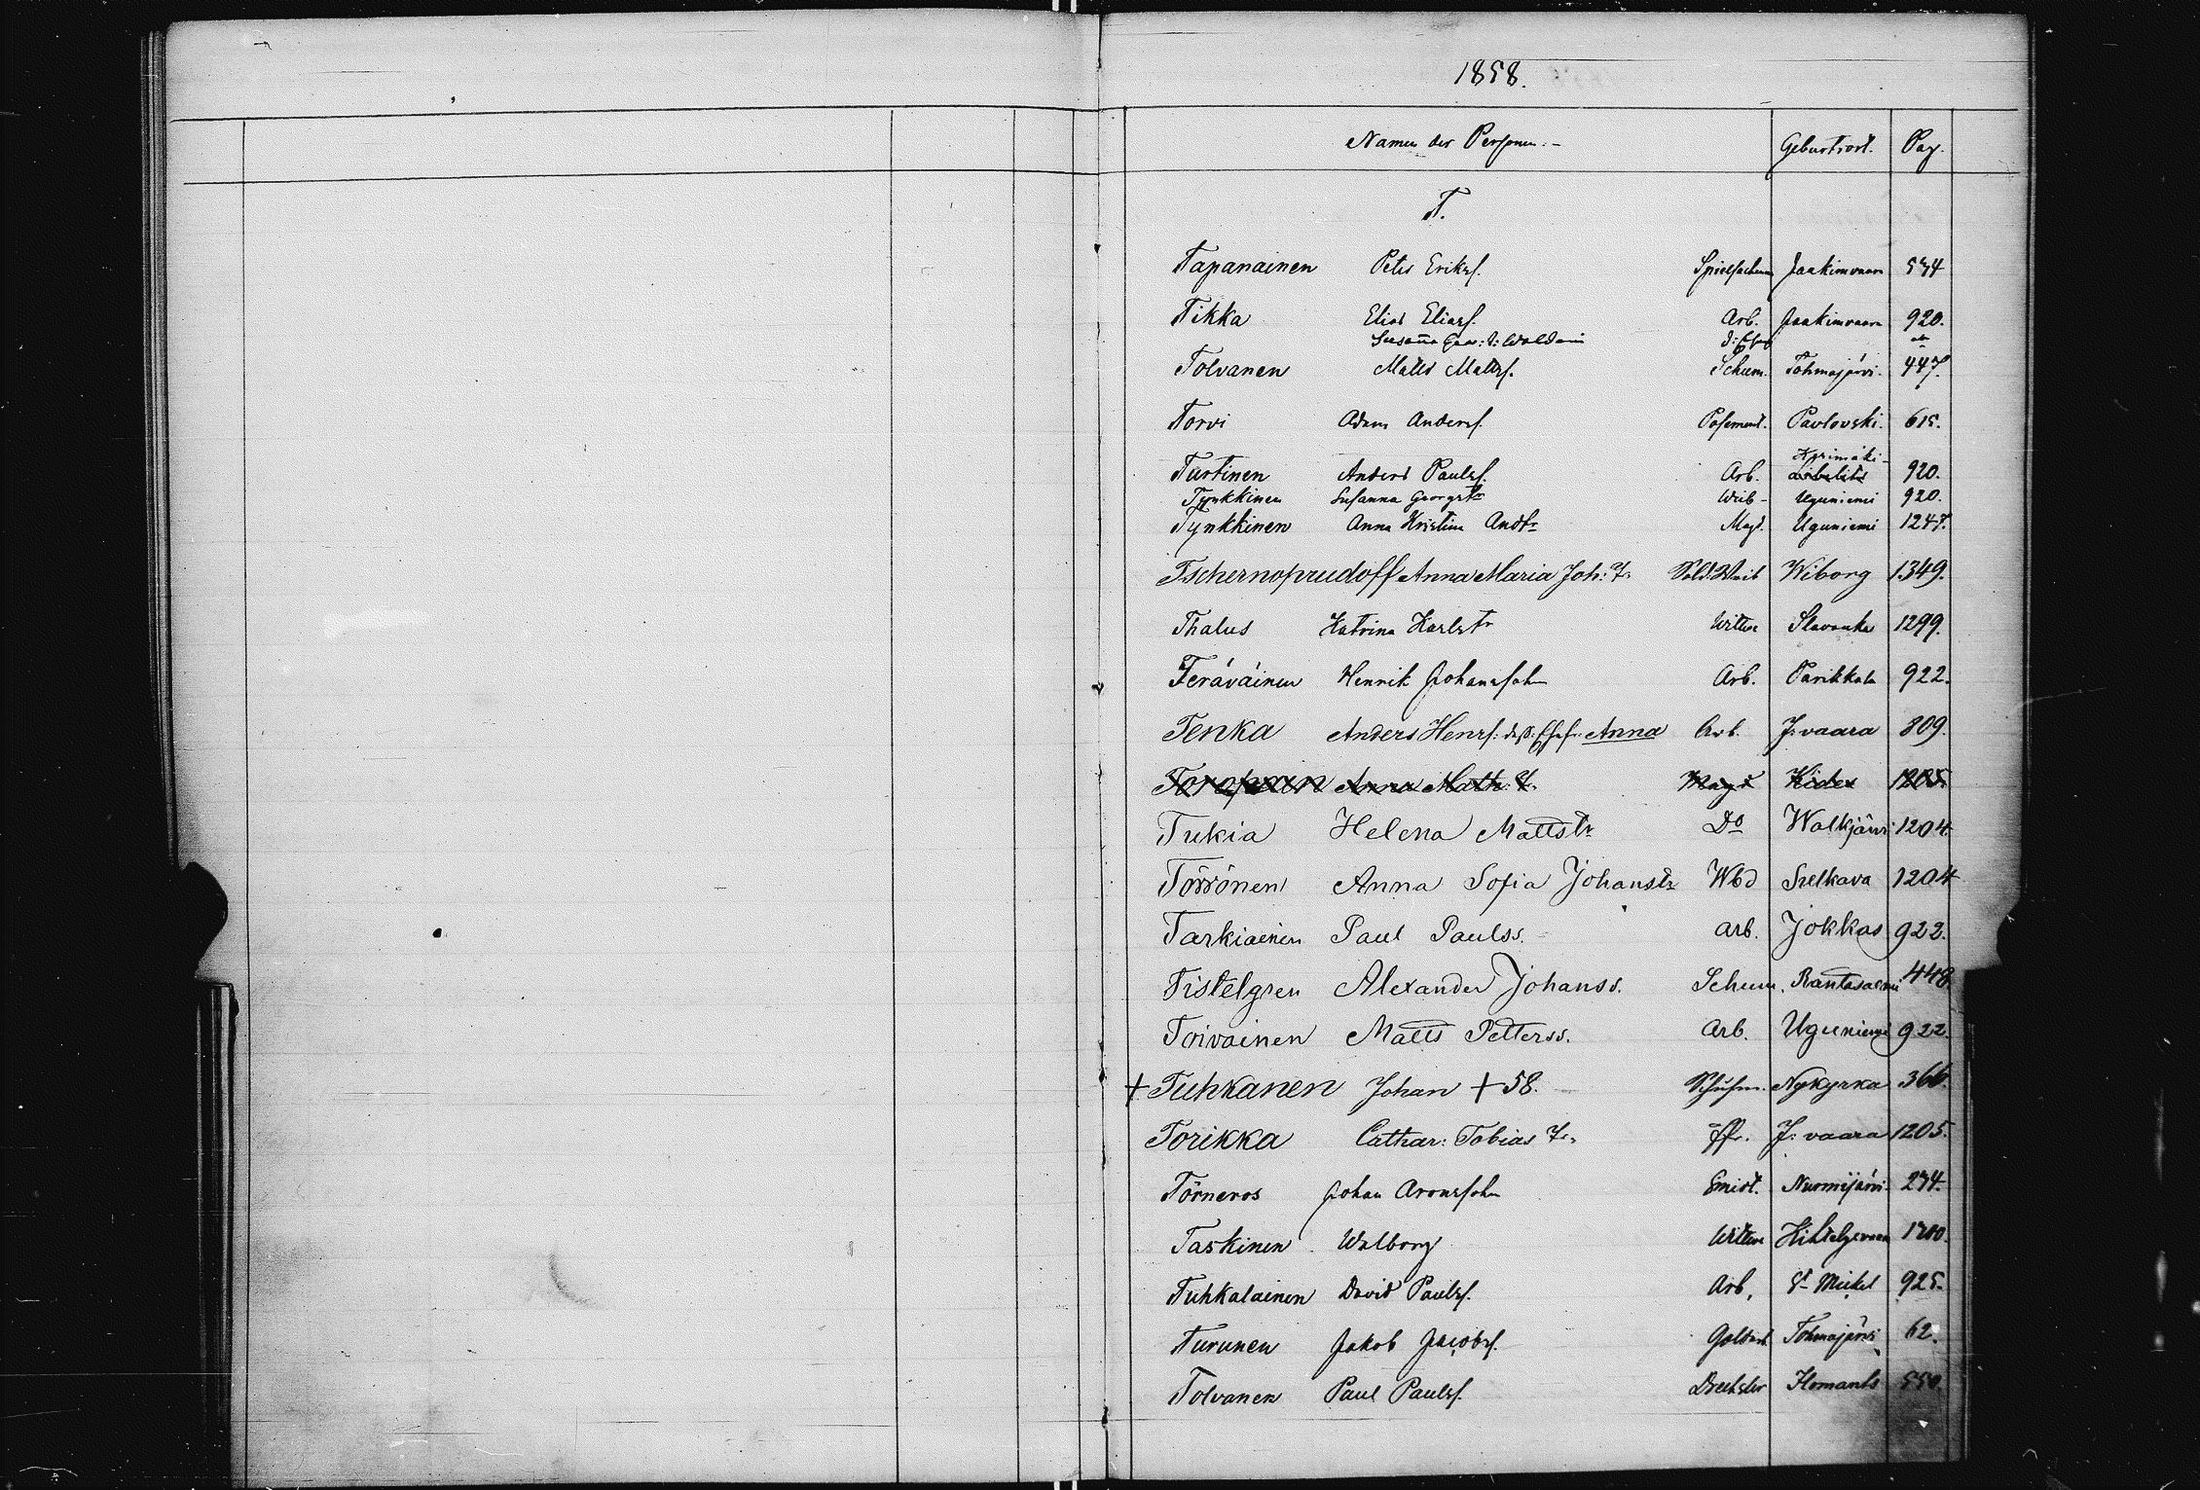 1858.
Namen der Personen.- Geburtsort. Pag.
T.
Tapanainen Peter Eriksf. Jaakimvaara 574
Tikka Elias Eliasf. Arb. Jaakimvaara 920.
Susanna
Tolvanen Matts Mattsf. Schum. Tohmajärvi. 447.
Torvi Adam Andersf. Posement. Pavlovski. 615.
Kyrimäki
Turtinen Anders Paulsf. Arb. 920.
Tynkkinen Susanna Georgstr Weib- Uguniemi 920.
Tynkkinen Anna Kristina Andtr Magd. Uguniemi 1247.
Tschernoprudoff Anna Maria Joh: T. Sold. Weib Wiborg 1349.
Thalus Katrina Karlstr Wittwe Slavanka 1299.
Teräväinen Henrik Johanssohn Arb. Parikkala 922.
Tenka Anders Henrf. Anna Arb. J: vaara 809.
Toropain Anna Math: T. Magd Kides 1205.
Tukia Helena Mattstr Do Walkjärvi 1204.
Törrönen Anna Sofia Johanstr Wbd Szelkava 1204
Tarkiainen Paul Paulss. Arb. Jokkas 922.
Tistelgren Alexander Johanss. Schum. Rantasalmi 448
Toivainen Matts Petterss. Arb. Uguniemi 922.
+ Tuhkanen Johan + 58. Schuhm. Nykyrka 366.
Torikka Cathar: Tobias T. J: vaara 1205.
Törneros Johan Aronssohn Smidt. Nurmijärvi 274.
Taskinen Walborg Wittwe 1200.
Tuhkalainen David Paulsf. Arb. St Mickel 925.
Turunen Jakob Jacobsf. Goldarb. Tohmajärvi 62.
Tolvanen Paul Paulsf. Drechsler Ilomants 550.